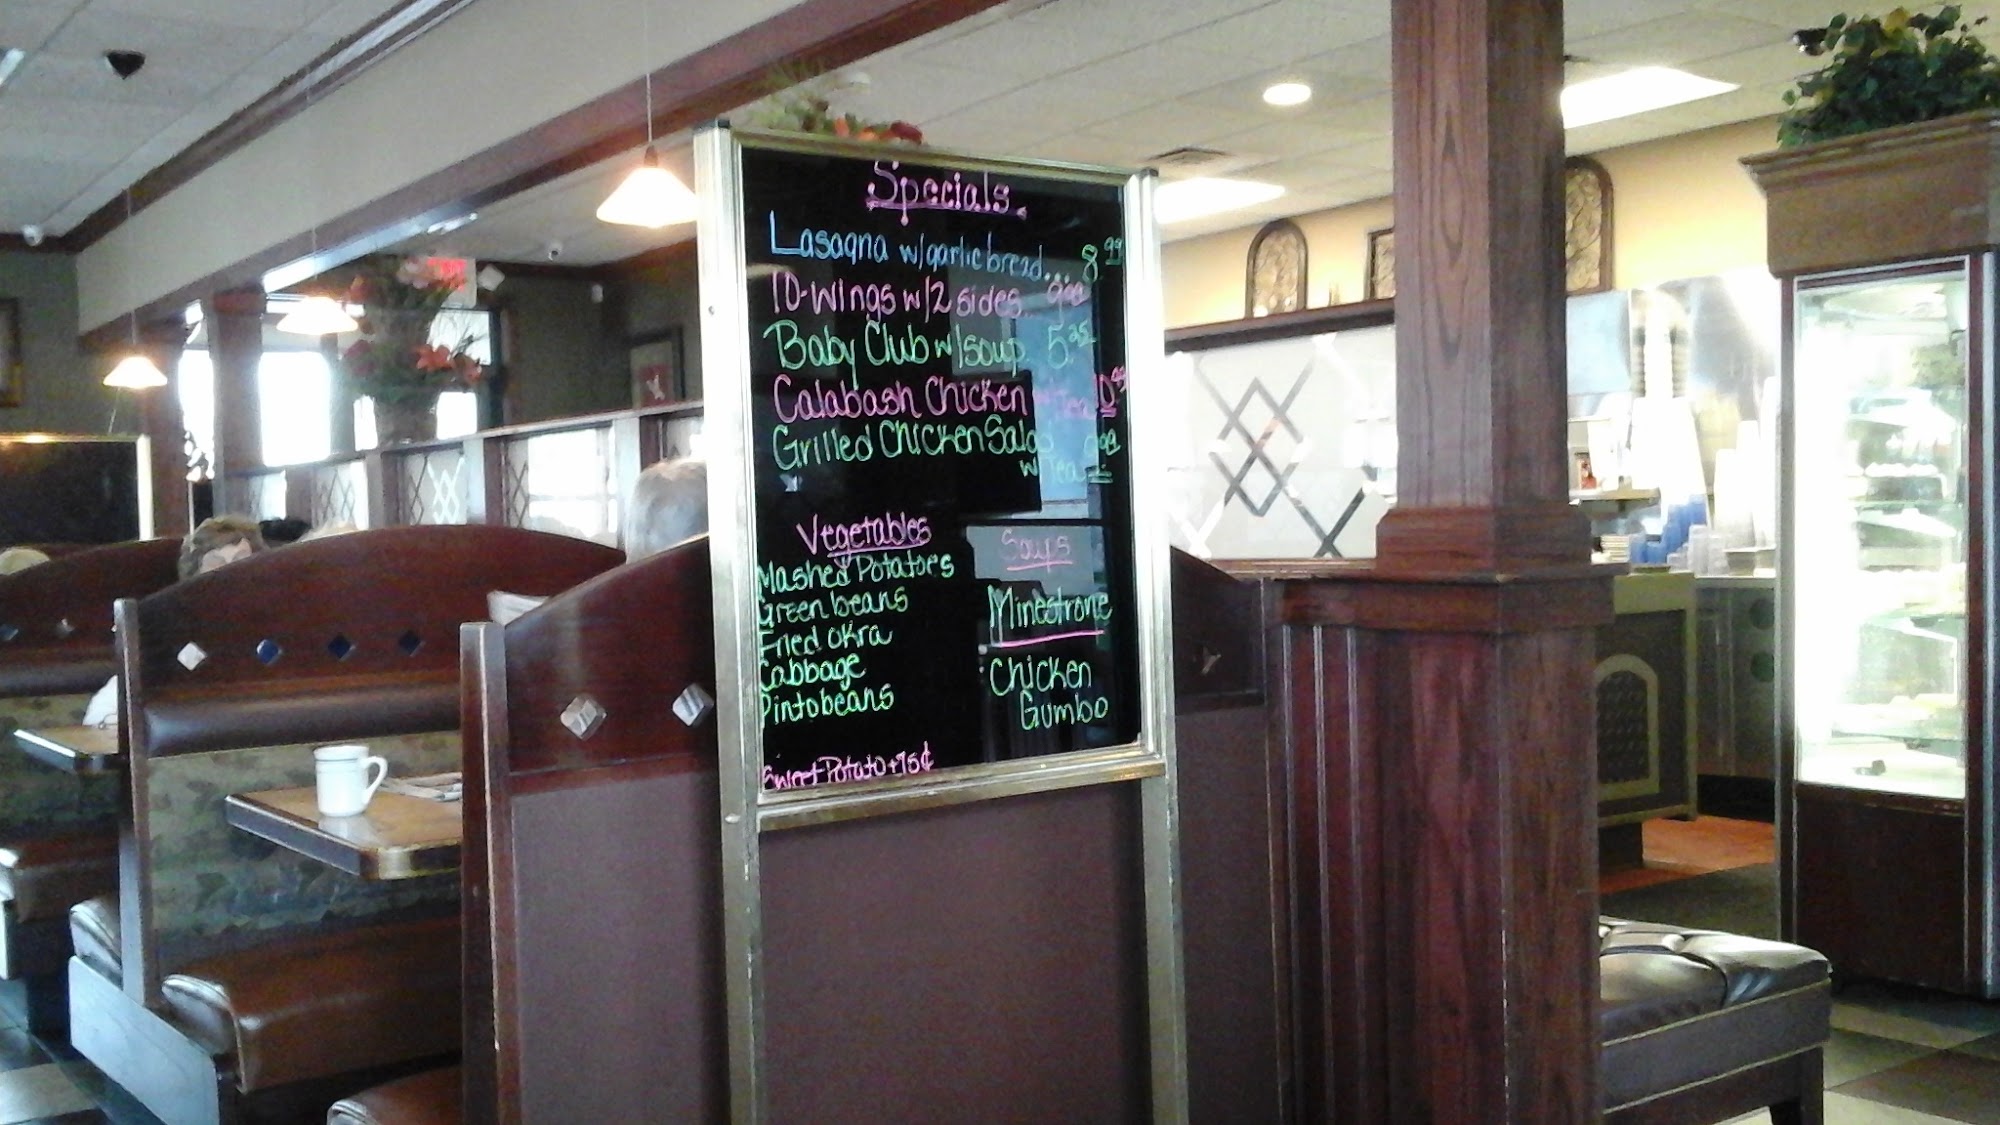 Specials.
Lasagna w/garlic bread... 8 99
10-wings w/2 sides... 9.99
Baby Club w/soup 5.25
Calabash Chicken w/Tea 10.99
Grilled Chicken Salad 9.99
w/Tea
Vegetables
Mashed Potatoes
Green beans
Fried okra
Cabbage
Pintobeans
Sweet Potato +75¢
Soups
Minestrone
Chicken
Gumbo